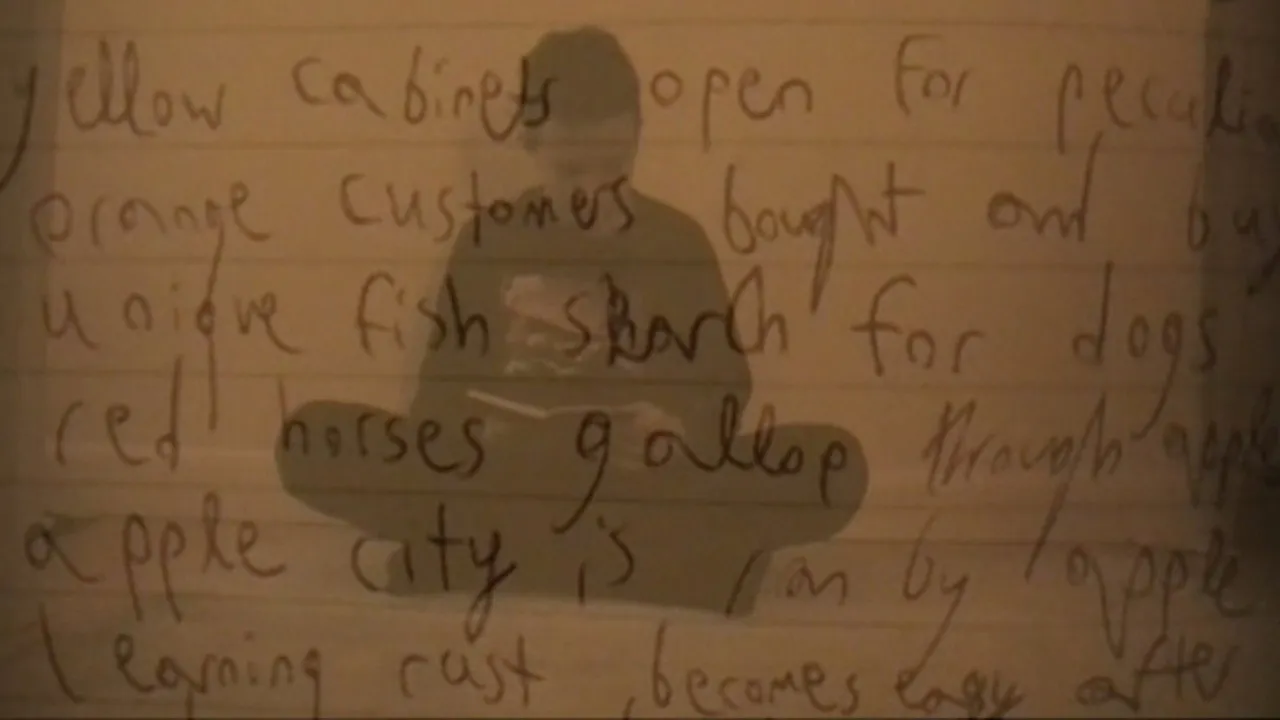 yellow cabinets open for
orange customers bought and
unique fish for dogs
red horses gallop through
apple city is ran by apple
learning rust becomes easy after